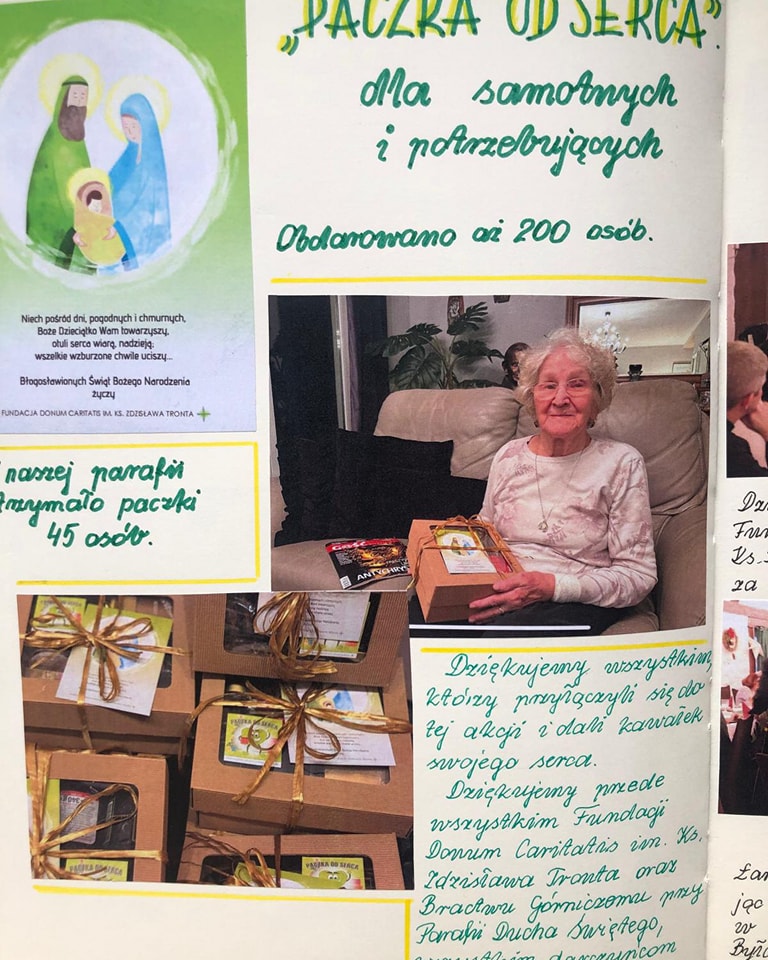 „PACZKA OD SERCA”
dla samotnych
i potrzebujących
Obdarowano aż 200 osób.
Niech pośród dni, pogodnych i chmurnych,
Boże Dzieciątko Wam towarzyszy,
otuli serca wiarą, nadzieją;
wszelkie wzburzone chwile uciszy...
Błogosławionych Świąt Bożego Narodzenia
życzy
FUNDACJA DONUM CARITATIS IM. KS. ZDZISŁAWA TRONTA
naszej parafii
trzymało paczki
45 osób.
GOŚĆ
ANTYCHRY
PACZKA OD SERCA
PACZKA OD SERCA
PACZKA OD SERCA
Dziękujemy wszystkim
którzy przyłączyli się do
tej akcji i dali kawałek
swojego serca.
Dziękujemy przede
wszystkim Fundacji
Donum Caritatis im. Ks.
Zdzisława Tronta oraz
Bractwu Górniczemu przy
Parafii Ducha Świętego,
wszystkim darczyńcom
Dzi
Fun
Ks.
za
Łam
jąc
w
Było